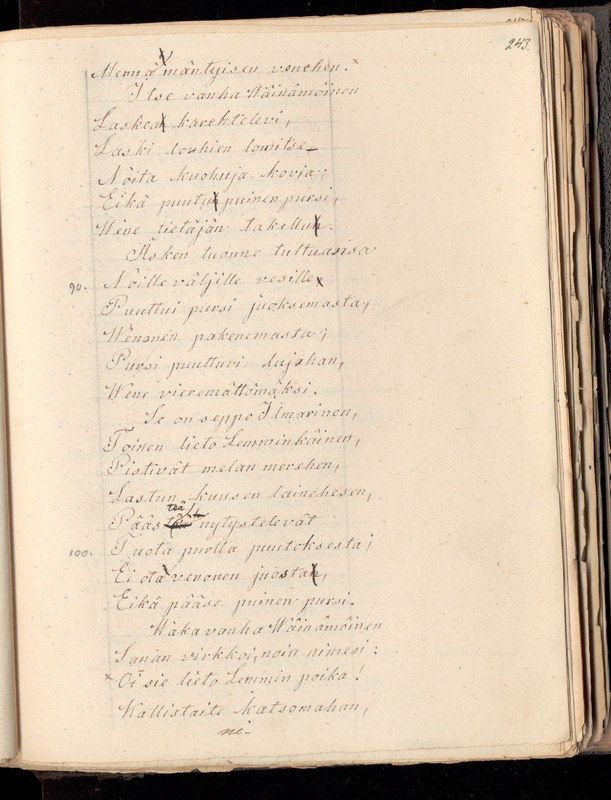 243.
Mennä mäntyisen venehen.
Itse vanha Wäinämöinen
Laskea karehtelevi,
Laski louhien lomitse
Noita kuohuja kovia;
Eikä puutu puinen pursi,
Wene tietäjän takellu.
Äsken tuonne tultuasisa
90. Noille väljille vesille
Puuttui pursi juoksemasta,
Wenonen pakenemasta;
Pursi puuttuvi lujahan,
Wene vieremättömäksi.
Se on seppo Ilmarinen,
Toinen lieto Lemminkäinen,
Pistivät melan merehen,
Lastun kuusen lainehesen,
Päästeä nytystelevät
100. Tuota purtta puutoksesta;
Ei ota venonen juosta,
Eikä pääse puinen pursi.
Waka vanha Wäinämöinen
Sanan virkkoi, noin nimesi:
Oi sie lieto Lemmin poika!
Kallistaite katsomahan,
ni-